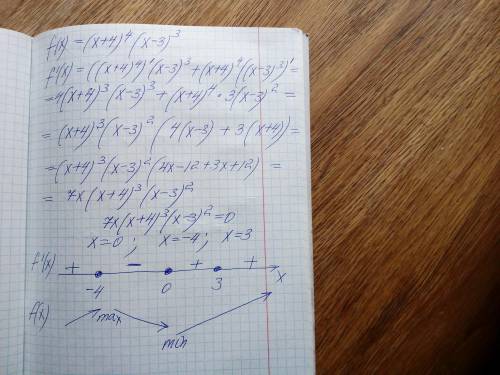 f(x) = (x+4)⁴(x-3)³
f'(x) = ((x+4)⁴)'(x-3)³ + (x+4)⁴((x-3)³)' =
= 4(x+4)³(x-3)³ + (x+4)⁴ · 3(x-3)² =
= (x+4)³(x-3)²(4(x-3) + 3(x+4)) =
= (x+4)³(x-3)²(4x-12+3x+12) =
= 7x(x+4)³(x-3)²
7x(x+4)³(x-3)² = 0
x=0; x=-4; x=3
f'(x) + - + +
-4 0 3 x
f(x) max min